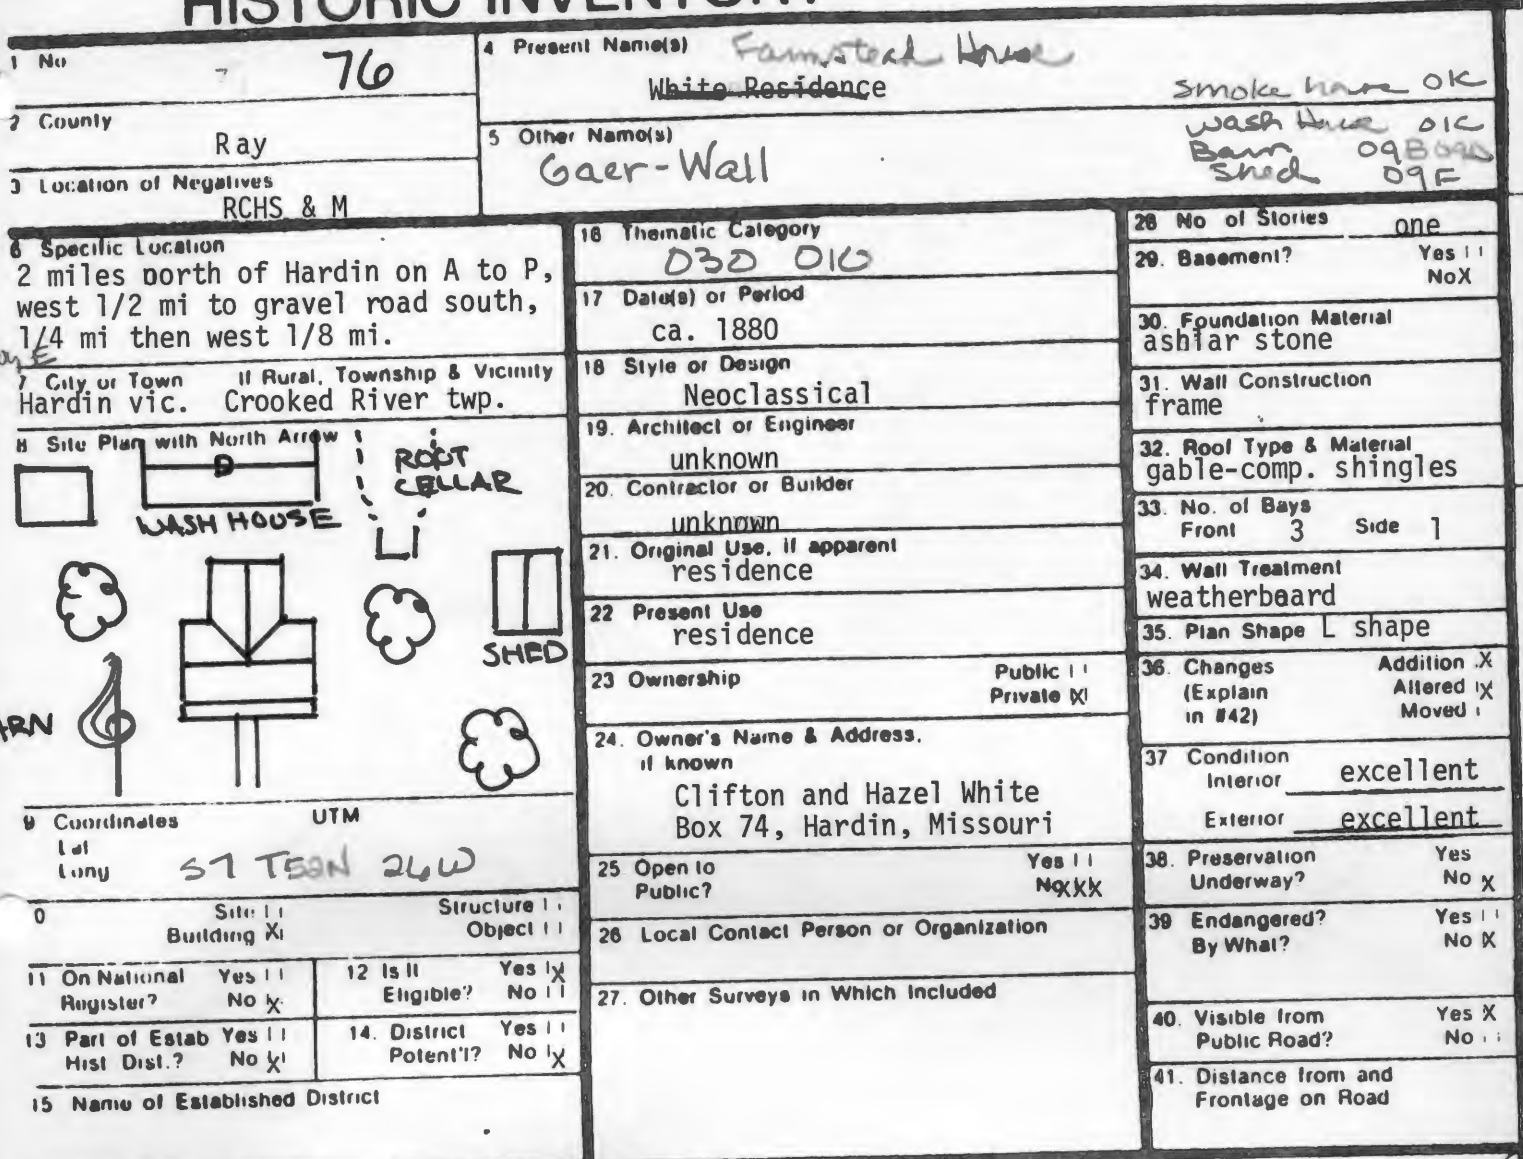 HISTORIC INVENTORY
1 No 76
2 County
Ray
3 Location of Negatives
RCHS & M
4 Present Name(s) Farmstead House
White Residence
5 Other Name(s)
Gaer-Wall
Smoke house OK
Wash House
Barn
Shed 09F
6 Specific Location
2 miles north of Hardin on A to P,
west 1/2 mi to gravel road south,
1/4 mi then west 1/8 mi.
7 City or Town If Rural, Township & Vicinity
Hardin vic. Crooked River twp.
8 Site Plan with North Arrow
WASH HOUSE
ROOT
CELLAR
SHED
ARN
9 Coordinates UTM
Lat
Long
S7 T52N 26W
0 Site Structure
Building X Object
11 On National Yes
Register? No X
12 Is It Yes X
Eligible? No
13 Part of Estab Yes
Hist Dist.? No X
14. District Yes
Potent'l? No X
15 Name of Established District
16 Thematic Category
030
17 Date(s) or Period
ca. 1880
18 Style or Design
Neoclassical
19. Architect or Engineer
unknown
20. Contractor or Builder
unknown
21. Original Use, if apparent
residence
22 Present Use
residence
23 Ownership Public
Private X
24. Owner's Name & Address,
if known
Clifton and Hazel White
Box 74, Hardin, Missouri
25 Open to Yes
Public? Noxxx
26 Local Contact Person or Organization
27. Other Surveys in Which Included
28 No of Stories one
29. Basement? Yes
No X
30. Foundation Material
ashlar stone
31. Wall Construction
frame
32. Roof Type & Material
gable-comp. shingles
33. No. of Bays
Front 3 Side 1
34. Wall Treatment
weatherboard
35. Plan Shape L shape
36. Changes Addition X
(Explain Altered X
in #42) Moved
37 Condition
Interior excellent
Exterior excellent
38. Preservation Yes
Underway? No X
39 Endangered? Yes
By What? No X
40. Visible from Yes X
Public Road? No
41. Distance from and
Frontage on Road